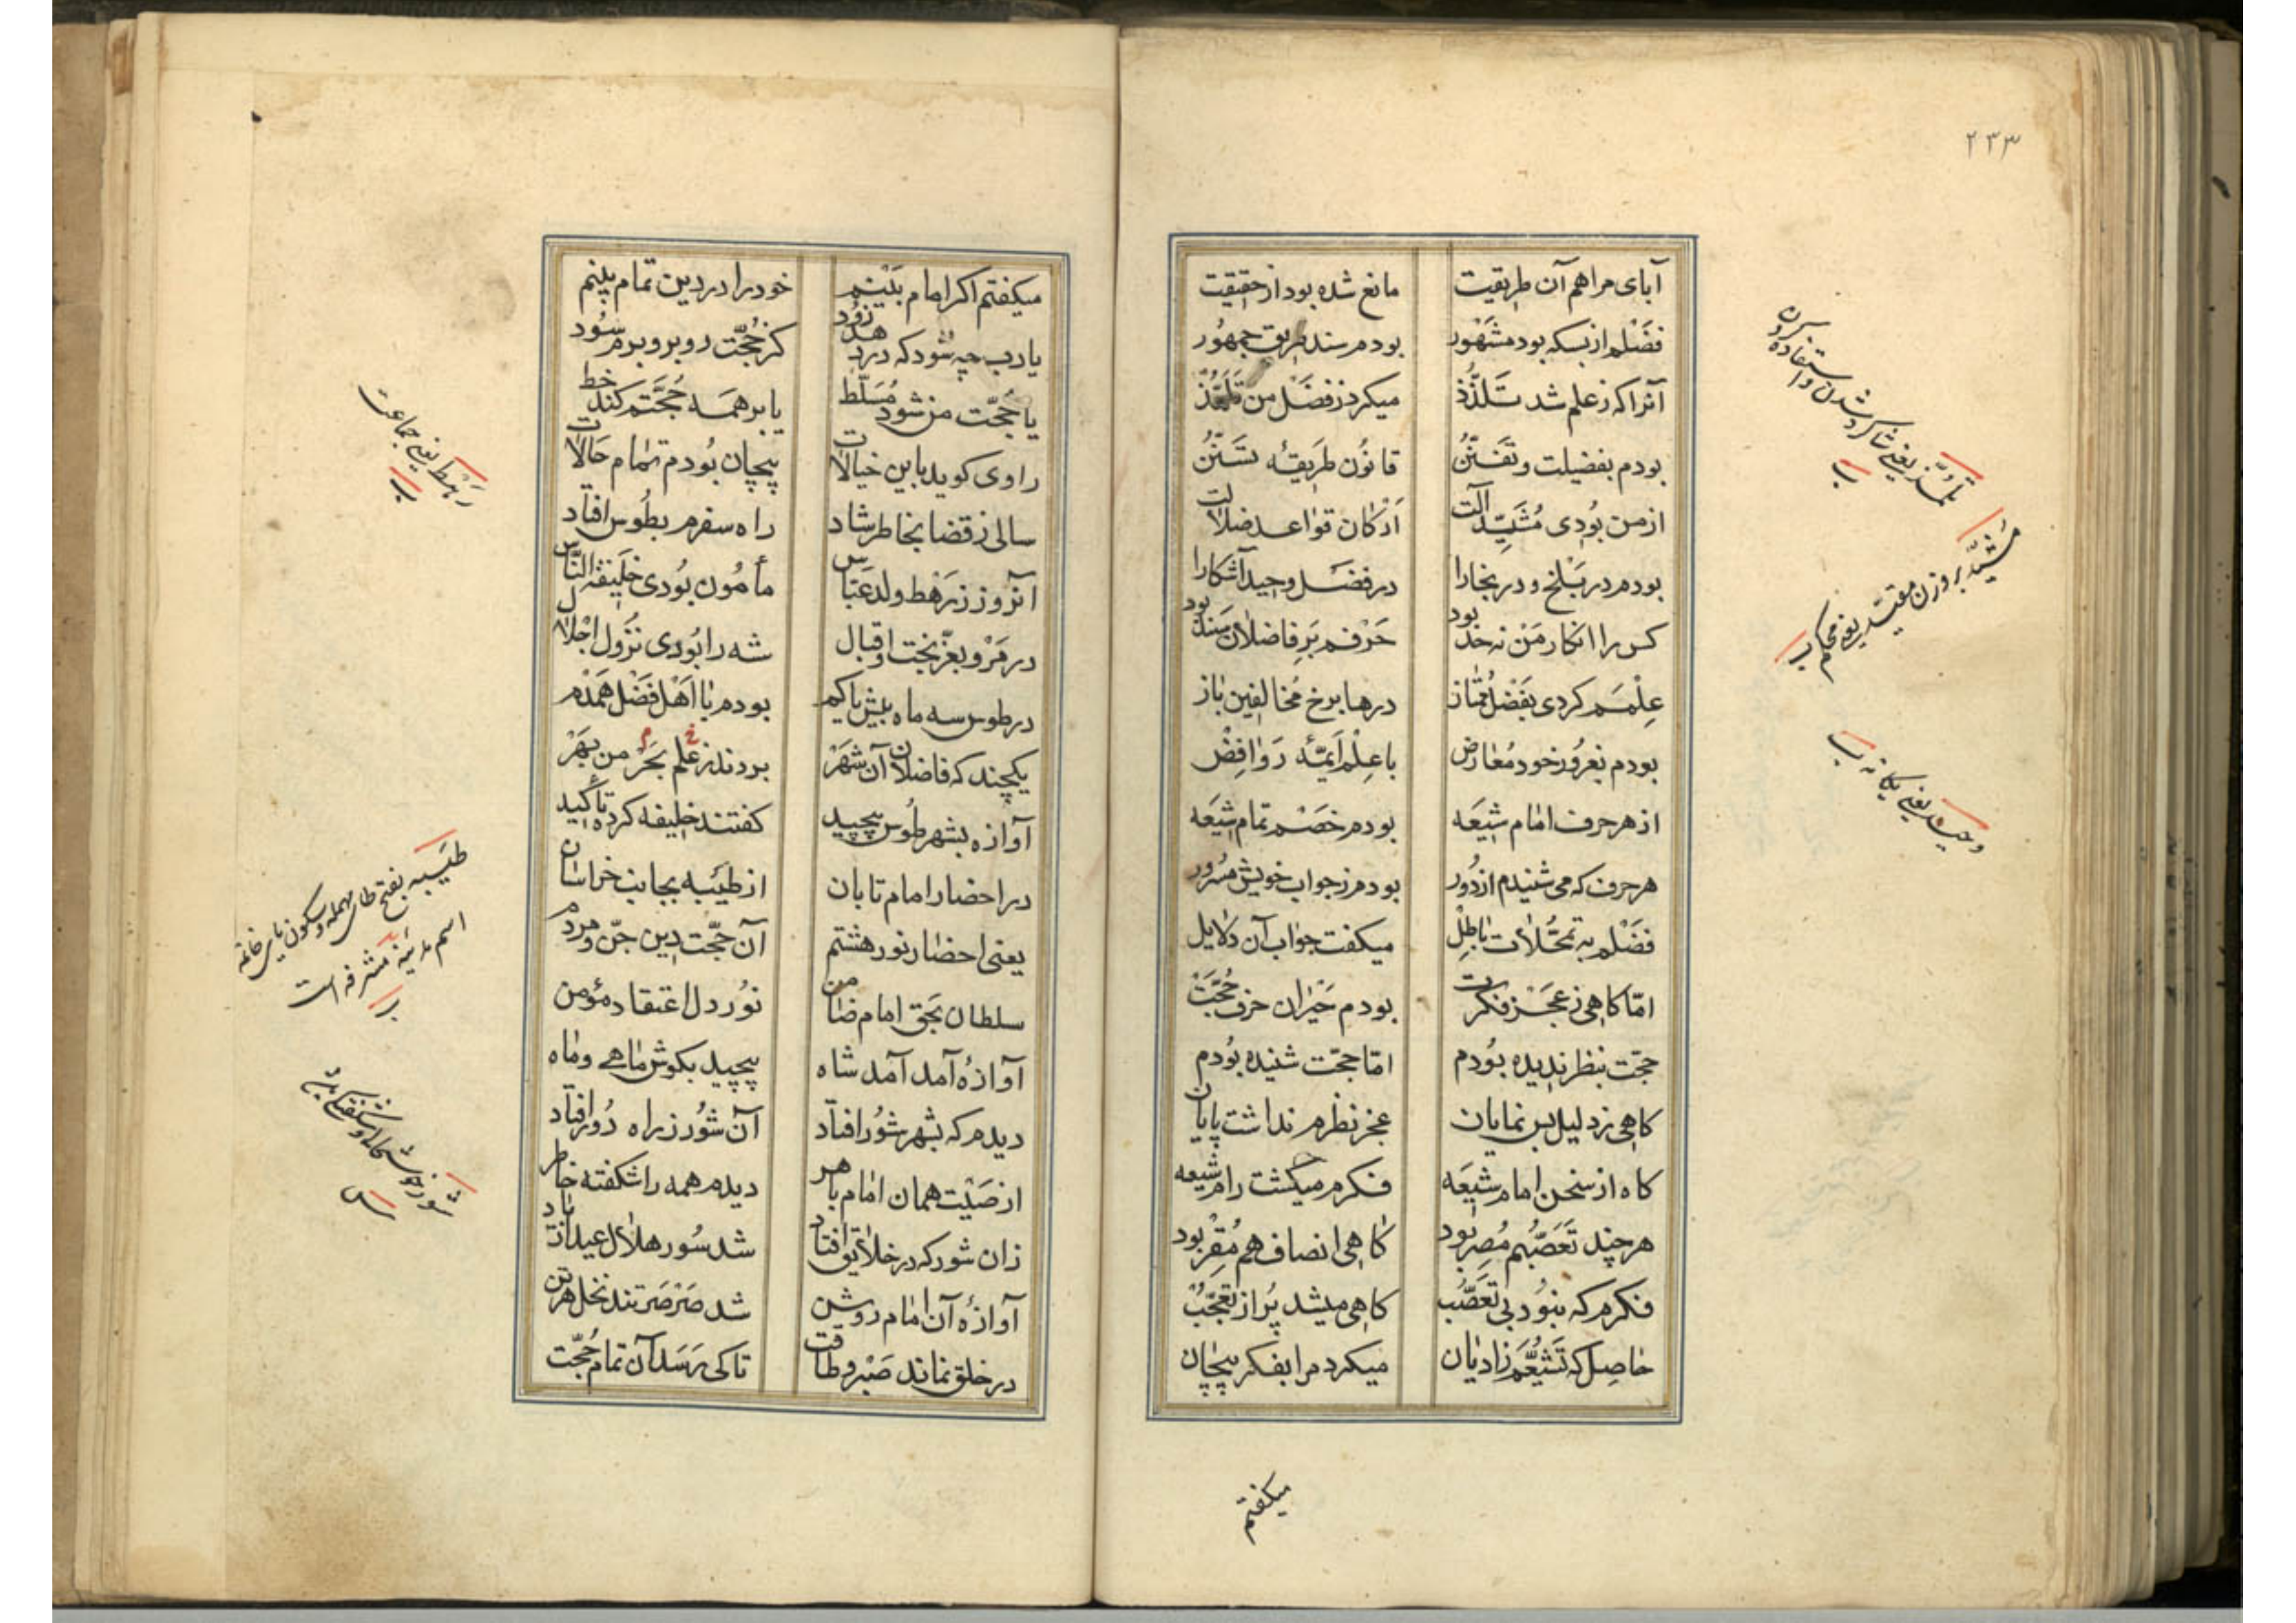 ٢٣٣
آبای مرا هم آن طریقیت مانع شده بود از حقیقت
فَضْلم از بسکه بود مشَهْور بودم سند طریق جمهُور
آنرا که ز علم شد تَلذُّذ میکرد ز فضَل من تَلَمُّذ
بودم بفضیلت و تفَنّنُ قانوُن طَریقهٔ تسَنّنُ
از من بُودی مُشَیِّد آلت ارْکان قواعد ضلالت
بودم در بَلْخ و در بخارا در فضَل وحید آشکارا
کس را انکار مَنْ نه حد بود حَرْفم بَرِ فاضلان سَند بود
عِلْمَم کردی بفَضْل مُمتاز درها برخ مُخالفین باز
بودم بغرُور خود مُعارض با عِلْم اَیمّهٔ رَوافِضْ
از هر حرف امام شیعَه بودم خصَم تمام شیعَه
هر حرف که می شنیدم از دُور بودم ز جواب خویش مسُرور
فضَلم به تمحّلات باطِل میکفت جواب آن دلایل
امّا کاهی ز عجَز فکرت بودم حَیْران حرف حُجّت
حجّت بنظر ندیده بوُدم امّا حجّت شنیده بوُدم
کاهی ز دلیل بس نمایان عجز نظرم نداشت پایان
کاه از سخن امام شیعَه فکرم میکشت رام شیعه
هر چند تَعَصّبُم مُصِر بود کاهی انصاف هم مُقِرْ بود
فکرم که نبوُد بی تعَصّبُ کاهی میشد پُر از تعَجّبُ
حاصل که تَشَیُّعَم ز ادیان میکرد مرا بفکر پیچان
میکفتم
تلمُّذ یعنی شاکرد شدن و استفاده کردن
مُشَیَّد بر وزن مقیّد یعنی محکم
وحید یعنی یکانه
میکفتم اکر امام بَیْنم خود را در دین تمام بینم
یا رب چه شود که در دهد زوُد کز حُجّت روبرو برم سوُد
یا حُجّت من شود مُسَلّط یا بر همَه حُجَّتم کند خط
راوی کوید باین خیالات پیچان بوُدم تمام حَالات
سالی ز قضا بخاطر شاد راه سفرم بطُوس افتاد
آنروز ز رَهْط ولد عَبّاس مأمُون بُودی خلَیفة النّاس
در مَرْو بعزّ بخت و اقبال شه را بُودی نزُول اجْلال
در طوس سه ماه بیش یا کم بودم با اَهْل فَضْل هَمَدْم
یکچند که فاضلان آن شَهْر بردند ز علم بَحَرْ من بهَرْ
آوازه بشهر طُوس پیچید کفتند خلیفه کرد تأکید
در احضار امام تابان از طیْبه بجانب خراسان
یعنی احضار نور هشتم آن حجّت دین جنّ و مردم
سلطان بحَق امام ضامن نُور دل اعتقاد مؤمن
آوازهٔ آمد آمد شاه پیچید بکوش ماهی و ماه
دیدم که بشهر شوُر افتاد آن شوُر ز راه دُور افتاد
از صیْت همان امام باهر دیدم همه را شکفته خاطر
زان شور که در خلایق افتاد شد سُور هلال عید از یاد
آوازهٔ آن امام روشن شد صَرْصَر تند نخل هر تن
در خلق نماند صَبْر و طاقت تا کی رَسَد آن تمام حُجّت
رَهْط یعنی جماعت
طَیْبه بفتح طای مهمله و سکون یای
اسم مدینهٔ مشرفه است